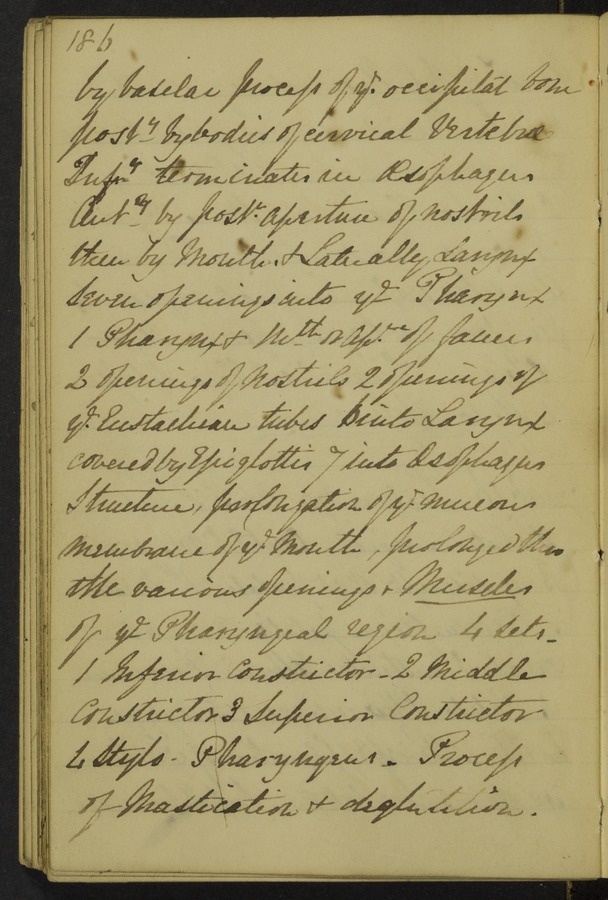 186
by basilar process of ye occipital bone
postly by bodies of cervical Vertebra
Infrly terminates in Oesophagus
Antly by postr. aperture of nostrils
then by Mouth & Laterally Larynx
Seven openings into ye Pharynx
1 Pharynx & mth or apre of fauces
2 openings of Nostrils 2 openings of
ye Eustachian tubes 6 into Larynx
covered by Epiglottis 7 into Oesophagus
Structure, prolongation of ye mucous
membrane of ye Mouth, prolonged thro
the various openings & Muscles
of ye Pharyngeal region 4 sets -
1 Inferior Constrictor - 2 Middle
Constrictor 3 Superior Constrictor
4 Stylo - Pharyngeus - Process
of Mastication & deglutition.